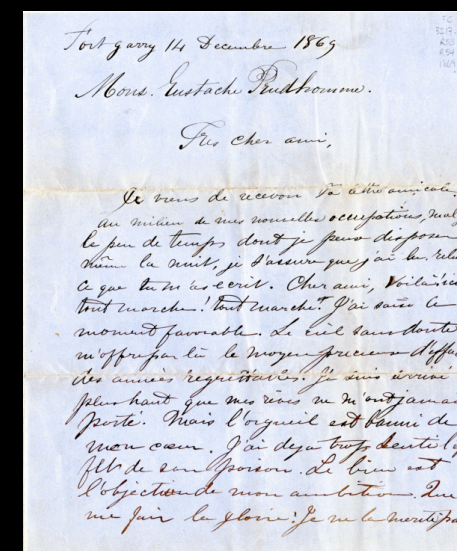 FC
3217.
1869
Fort garry 14 Decembre 1869
Mons. Eustache Prudhomme.
Tres cher ami,
Je viens de recevoir Ta lettre amicale.
au milieu de mes nouvelles occupations, mal
le peu de temps dont je peux disposer
même la nuit, je t'assure que j'ai lu
ce que tu m'as ecrit. Cher ami, voila ici
tout marche! tout marche! J'ai saisi le
moment favorable. Le ciel sans doute
m'offre par là le moyen precieux d'effa
des années regrettables. Je suis arrivé
plus haut que mes rêves ne m'ont jama
porté. Mais l'orgueil est banni de
mon cœur. J'ai deja trop senti l
de son poison. Le bien est
l'objection de mon ambition. Que
me fair la gloire! Je ne la merite pa